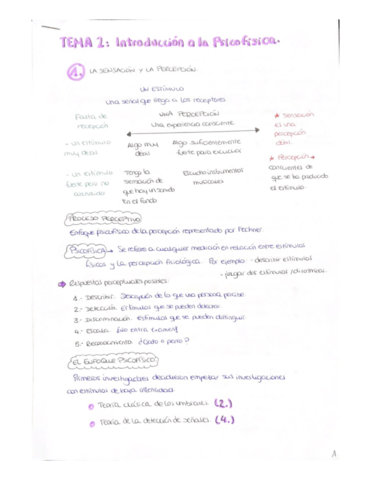 TEMA 2: Introducción a la Psicofísica.
1. LA SENSACIÓN Y LA PERCEPCIÓN
UN ESTÍMULO
Una señal que llega a los receptores
Falta de recepción
UNA PERCEPCIÓN
Una experiencia consciente
★ Sensación es una percepción débil.
- Un estímulo muy débil
Algo muy débil
Algo suficientemente fuerte para escucharlo
★ Percepción consciencia de que se ha producido el estímulo.
- Un estímulo fuerte pero no
Tengo la sensación de que hay un sonido En el fondo
Escucho instrumentos musicales
PROCESO PERCEPTIVO
Enfoque psicofísico de la percepción representado por Fechner.
PSICOFÍSICA → Se refiere a cualquier medición en relación entre estímulos
físicos y la percepción fisiológica. Por ejemplo: - describir estímulos
- juzgar del estímulo su intensidad.
Respuestas perceptuales posibles:
1.- Describir. Descripción de lo que una persona percibe
2.- Detección. Estímulos que se pueden detectar
3.- Discriminación. Estímulos que se pueden distinguir
4.- Escala.
5.- Reconocimiento. ¿Gato o perro?
EL ENFOQUE PSICOFÍSICO
Primeros investigadores decidieron empezar sus investigaciones
con estímulos de baja intensidad
Teoría clásica de los umbrales (2.)
Teoría de la detección de señales (4.)
1